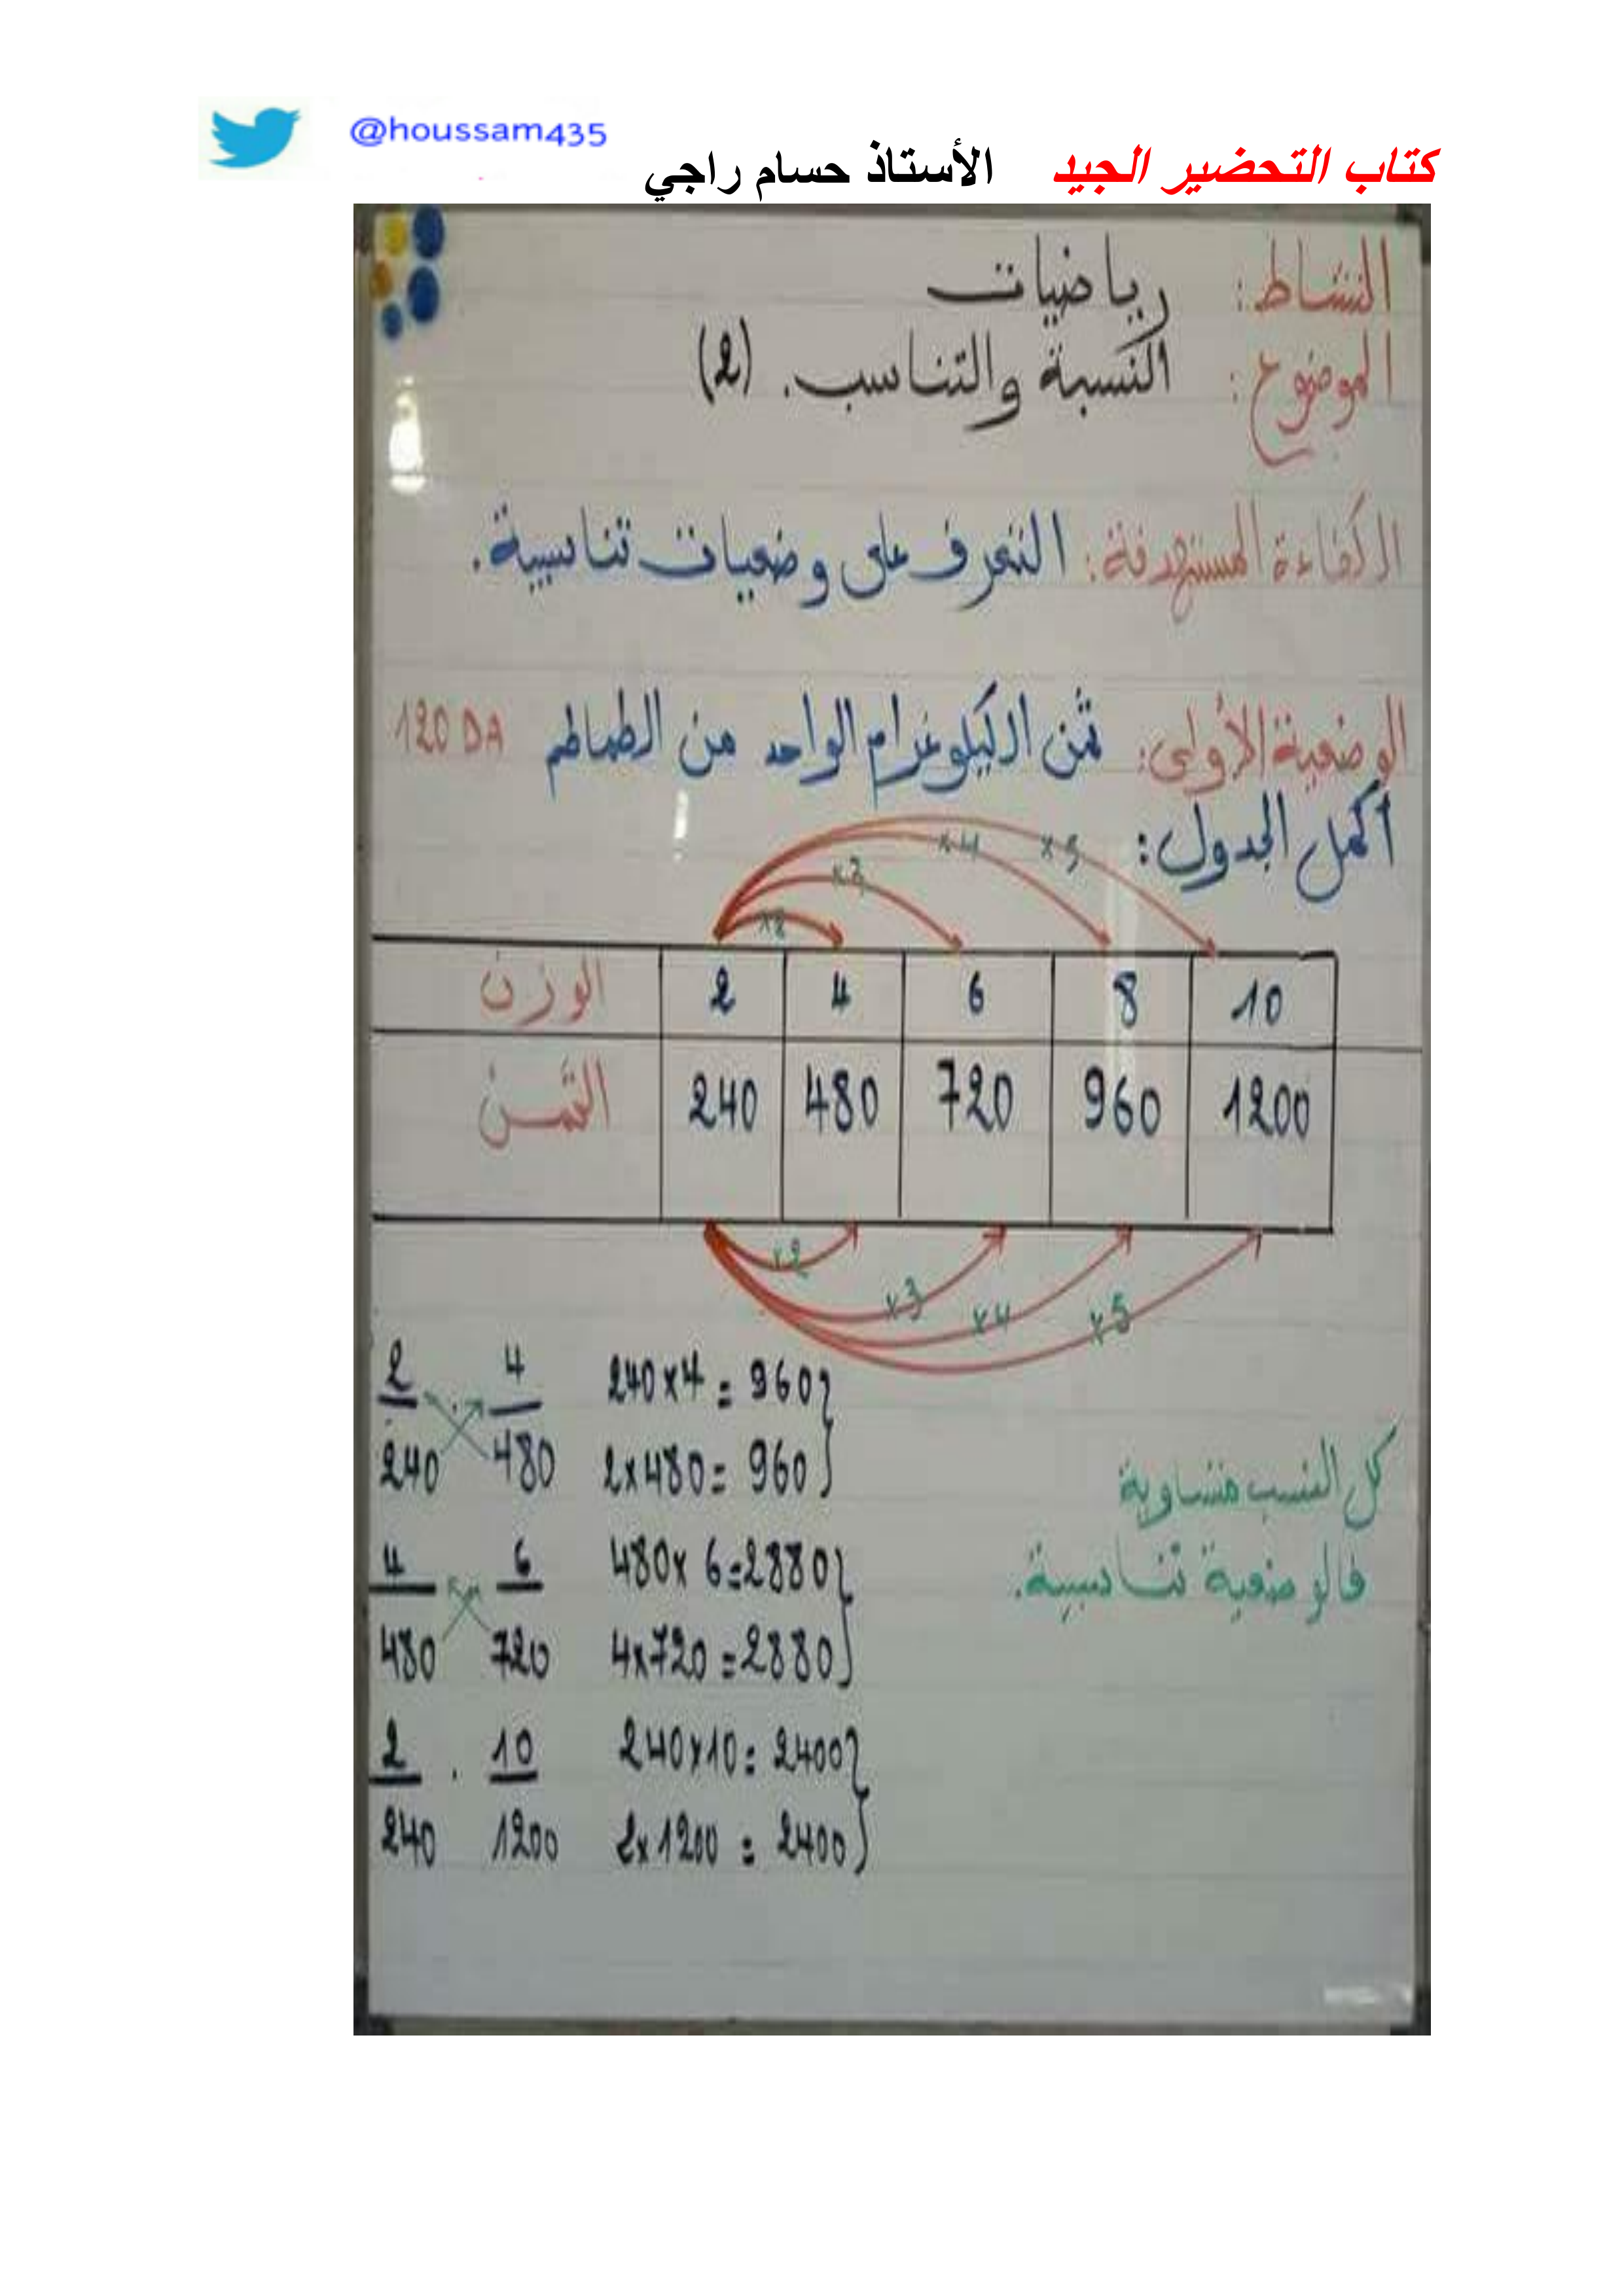 @houssam435
كتاب التحضير الجيد الأستاذ حسام راجي
النشاط: رياضيات
الموضوع: النسبة والتناسب. (2)
الكفاءة المستهدفة: التعرف على وضعيات تناسبية.
الوضعية الأولى: ثمن الكيلوغرام الواحد من الطماطم 120 DA
أكمل الجدول:
x2 x3 x4 x5
الوزن 2 4 6 8 10
الثمن 240 480 720 960 1200
x2 x3 x4 x5
2 4 240x4 = 960}
240 480 2x480 = 960}
4 6 480x 6=2880}
480 720 4x720 =2880}
2 . 10 240x10= 2400}
240 1200 2x1200 = 2400}
كل النسب متساوية
فالوضعية تناسبية.